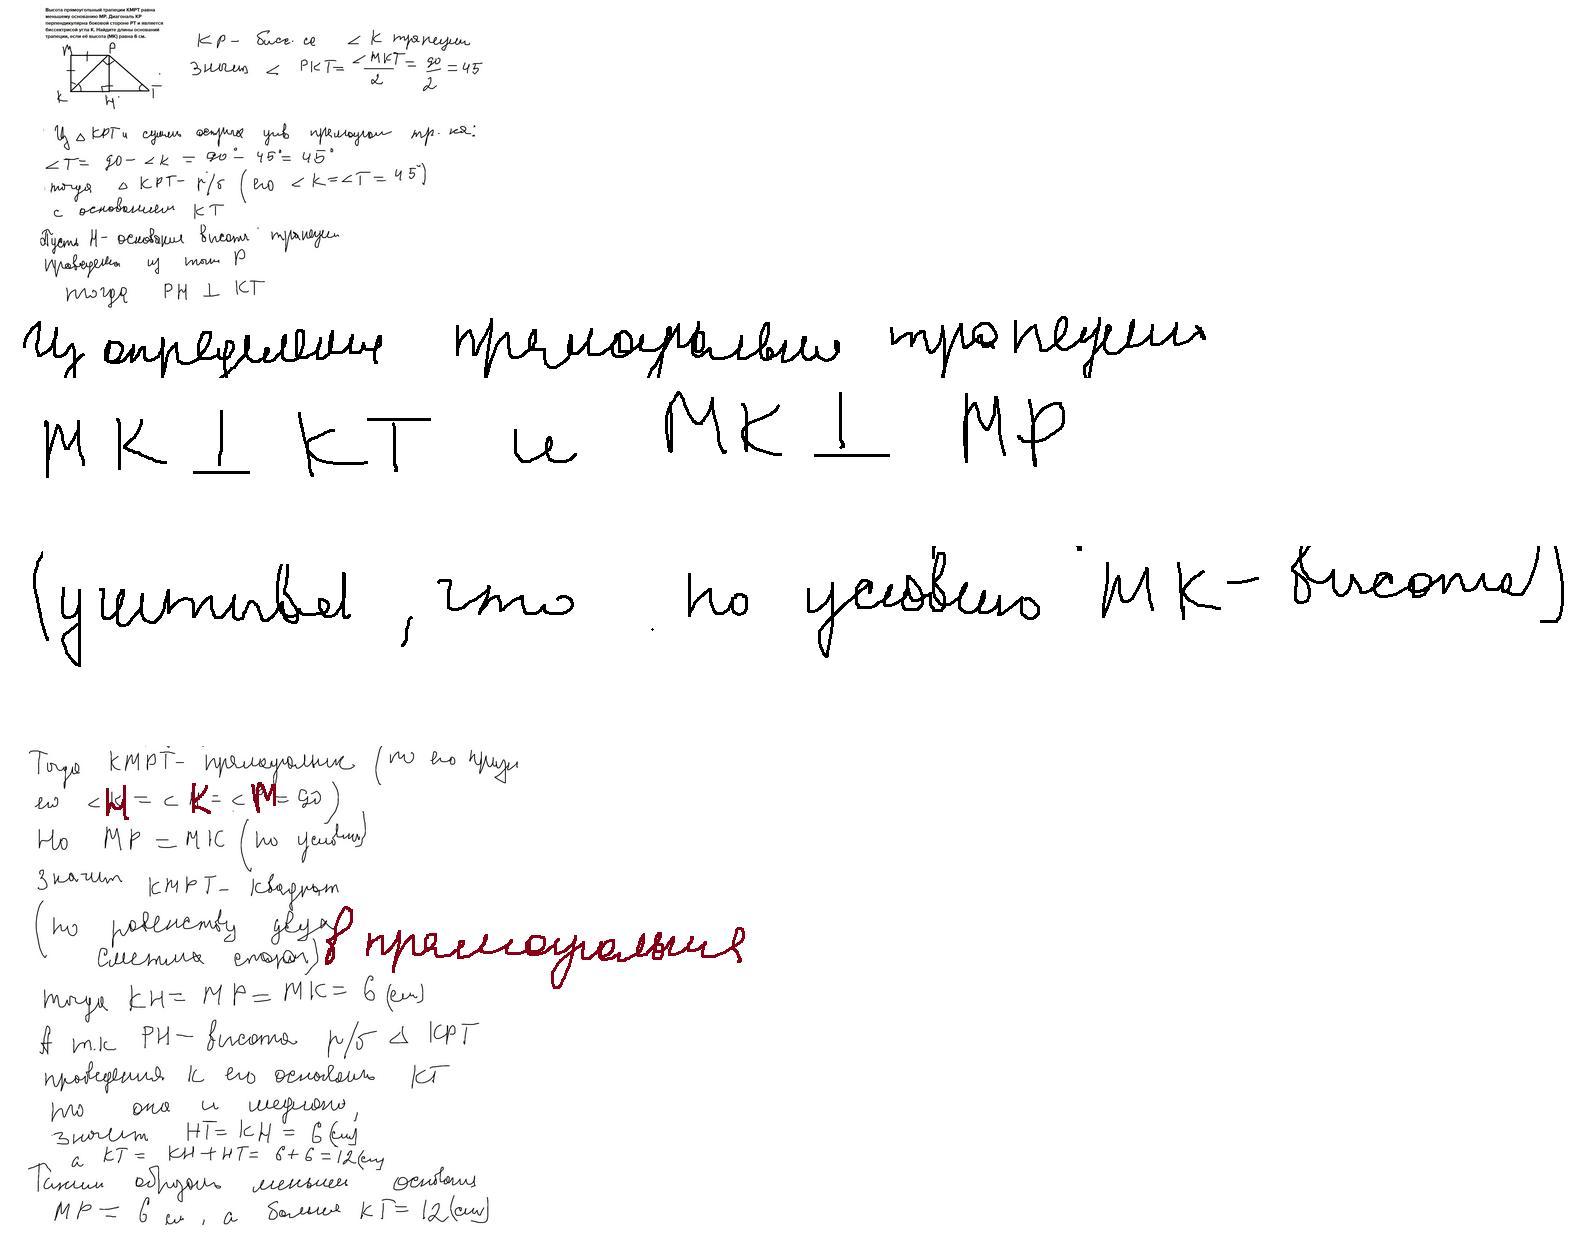 Высота прямоугольный трапеции KMPT равна
меньшему основанию MP. Диагональ KP
перпендикулярна боковой стороне PT и является
биссектрисой угла K. Найдите длины оснований
трапеции, если её высота (MK) равна 6 см.
M P
K H T
KP - бисс. се ∠ K трапеции
Значит ∠ PKT = ∠MKT/2 = 90/2 = 45
Из △ KPT и суммы острых угв прямоугол тр. ка:
∠T = 90 - ∠K = 90° - 45° = 45°
тогда △ KPT - р/б (его ∠K = ∠T = 45°)
с основанием KT
Пусть H - основание высоты трапеции
проведенн из точки P
тогда PH ⊥ KT
Из определения прямоугольной трапеции
MK ⊥ KT и MK ⊥ MP
(учитывая, что по условию MK - высота)
Тогда KMPT - прямоугольник (по его призн
его ∠H = ∠K = ∠M = 90)
Но MP = MK (по условию)
Значит KMPT - квадрат
(по равенству двух в прямоугольнике
смежных сторон)
тогда KH = MP = MK = 6 (см)
А т.к PH - высота р/б △ KPT
проведенная к его основанию KT
то она и медиана,
значит HT = KH = 6 (см)
а KT = KH + HT = 6 + 6 = 12 (см)
Таким образом меньшее основание
MP = 6 см, а больше KT = 12 (см)